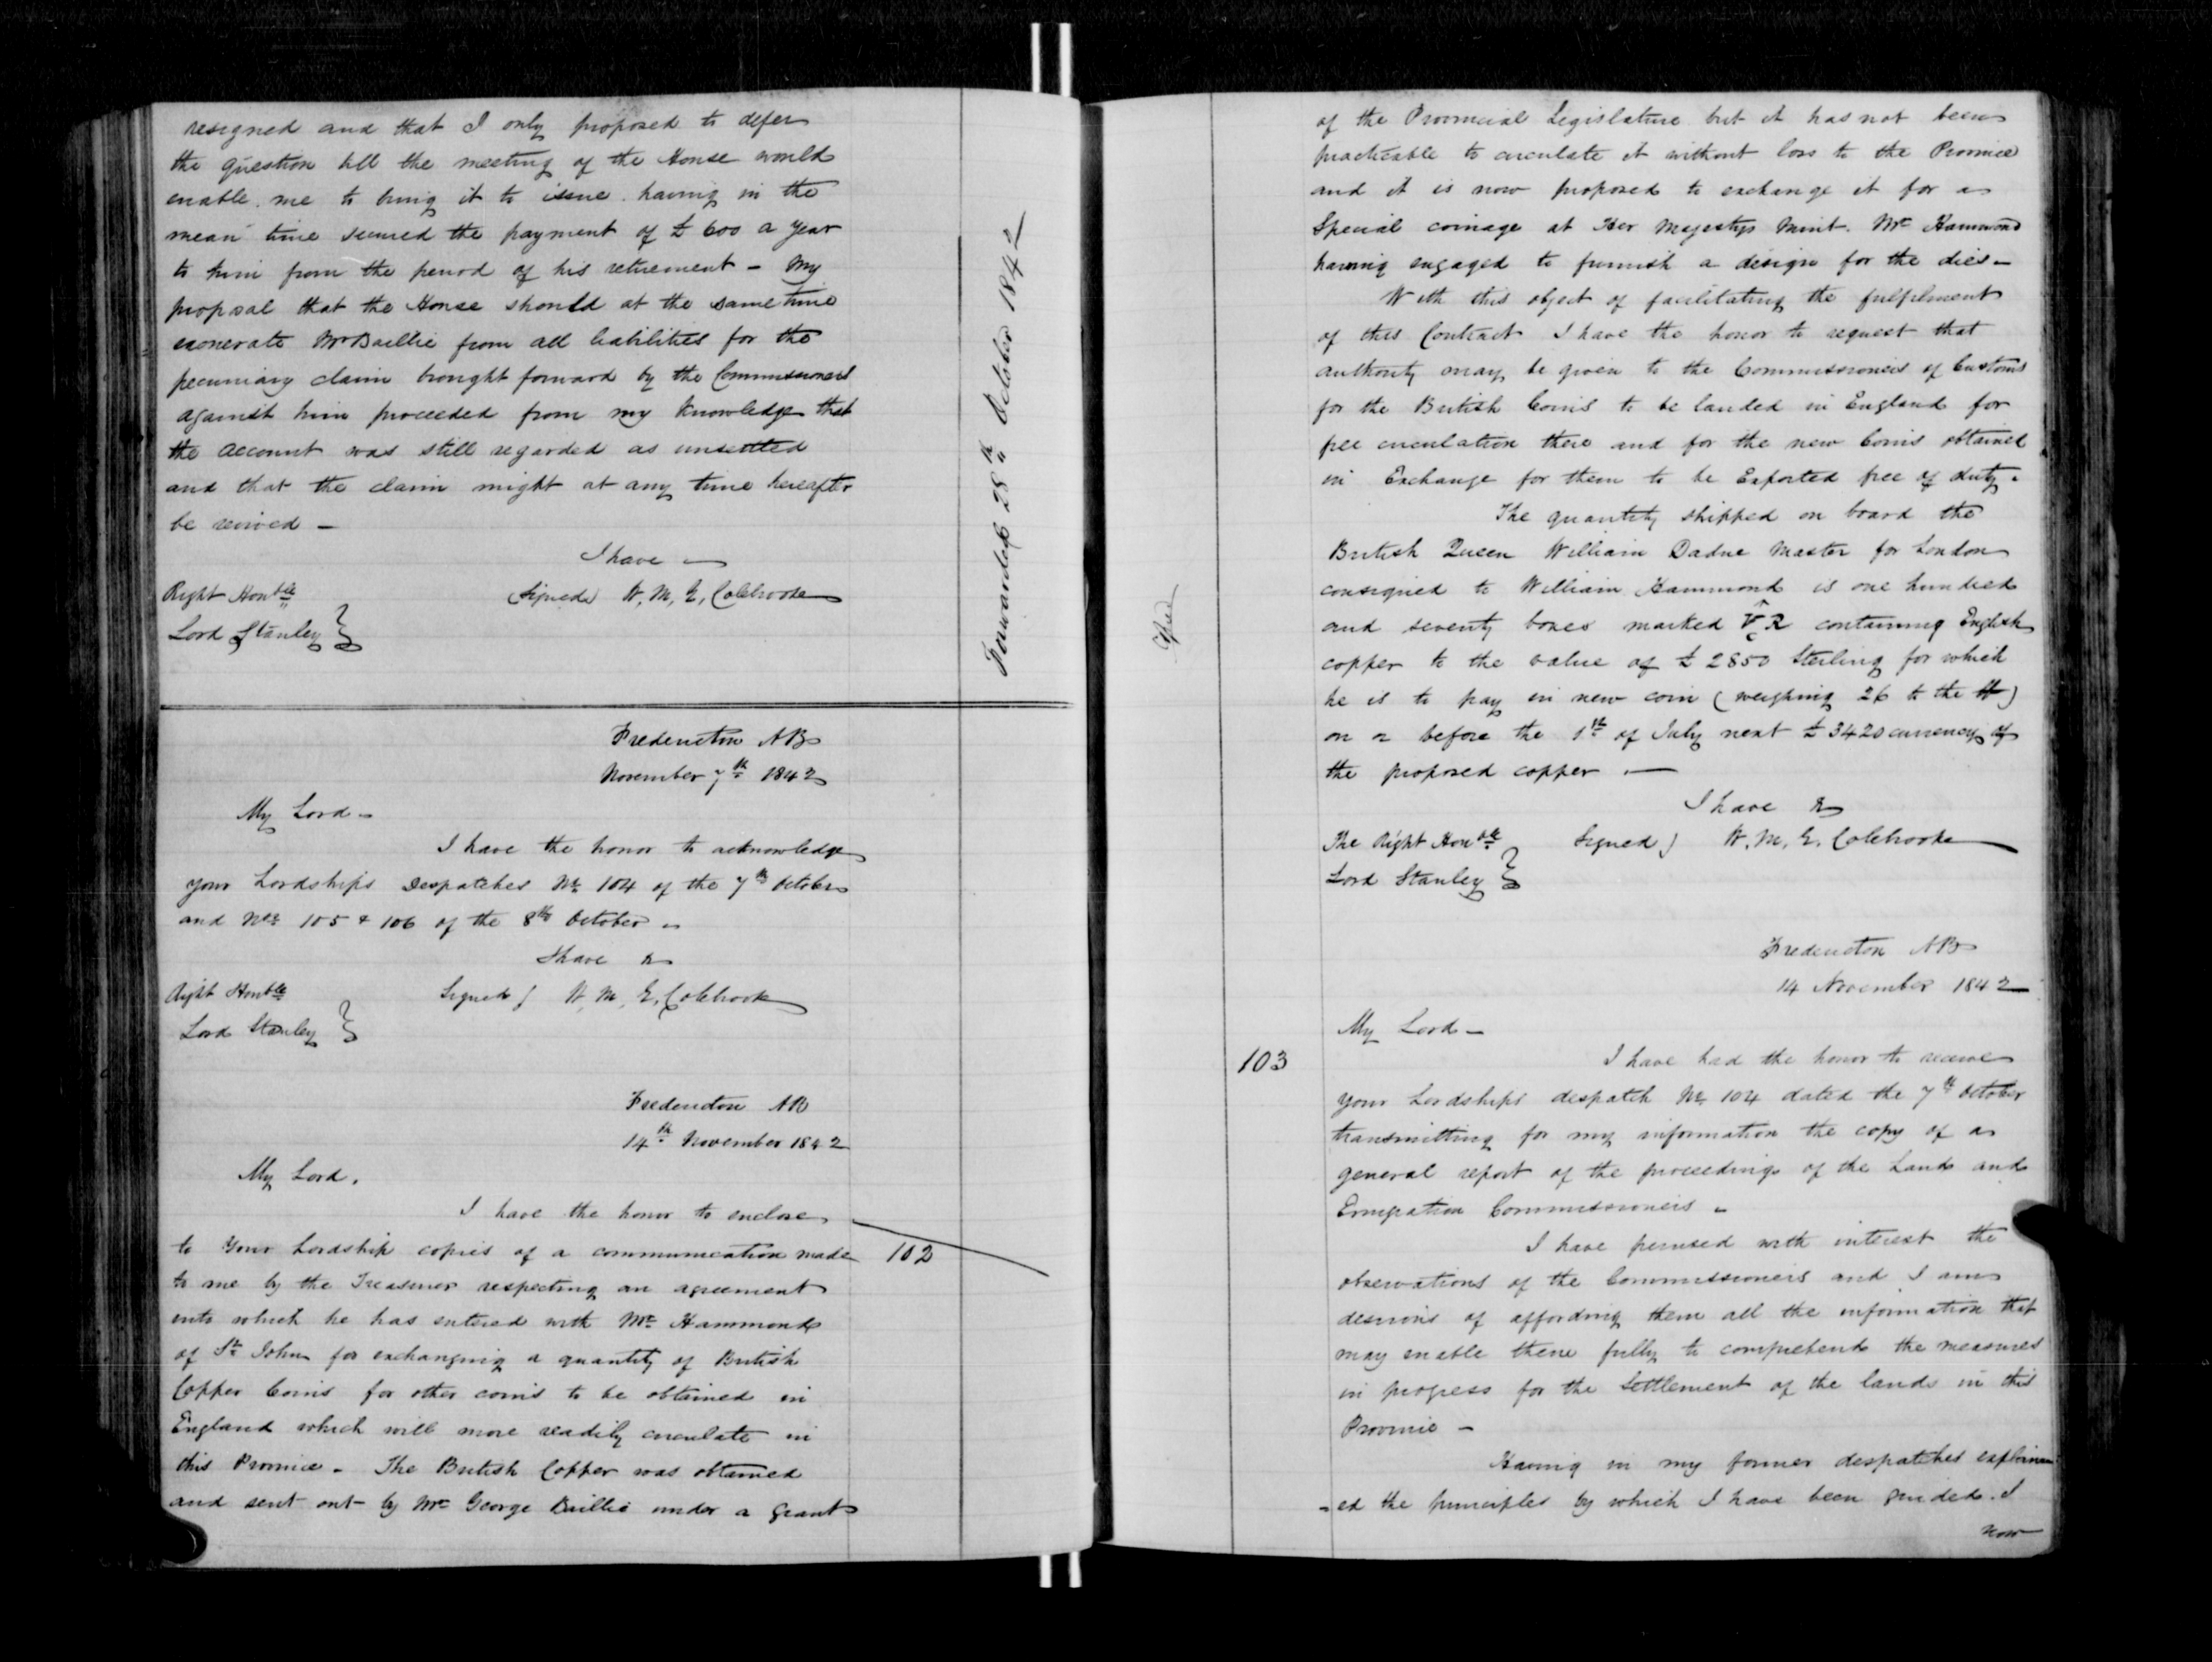 resigned and that I only proposed to defer
the question till the meeting of the House would
enable me to bring it to issue having in the
mean time secured the payment of £600 a Year
to him from the period of his retirement - My
proposal that the House should at the same time
exonerate Mr Baillie from all liabilities for the
pecuniary claim brought forward by the Commissioners
against him proceeded from my knowledge that
the account was still regarded as unsettled
and that the claim might at any time hereafter
be revived -
I have
Right Honble (Signed) W, M, G, Colebrooke
Lord Stanley
Forwarded 28th October 1842
Fredericton NB
November 7th 1842
My Lord -
I have the honor to acknowledge
your Lordships Despatches No 104 of the 7th October
and Nos 105 & 106 of the 8th October -
I have &
Right Honble Signed) W, M, G, Colebrooke
Lord Stanley
Fredericton NB
14th November 1842
My Lord,
I have the honor to enclose
to Your Lordship copies of a communication made 102
to me by the Treasurer respecting an agreement
into which he has entered with Mr Hammond
of St John for exchanging a quantity of British
Copper Coins for other coins to be obtained in
England which will more readily circulate in
this Province - The British Copper was obtained
and sent out by Mr George Baillie under a grant
of the Provincial Legislature but it has not been
practicable to circulate it without loss to the Province
and it is now proposed to exchange it for a
Special coinage at Her Majestys Mint. Mr Hammond
having engaged to furnish a design for the dies -
With this object of facilitating the fulfilment
of this Contract I have the honor to request that
authority may be given to the Commissioners of Customs
for the British Coins to be landed in England for
free circulation there and for the new Coins obtained
in Exchange for them to be Exported free of duty.
The quantity shipped on board the
British Queen William Dadne Master for London
consigned to William Hammond is one hundred
and seventy boxes marked V R containing English
copper to the value of £2850 Sterling for which
he is to pay in new coin (weighing 26 to the lb)
on or before the 1st of July next £3420 currency of
the proposed copper . -
I have &
The Right Honble Signed) W. M. G. Colebrooke
Lord Stanley
Fredericton NB
14 November 1842
My Lord -
103 I have had the honor to receive
your Lordships despatch No 104 dated the 7th October
transmitting for my information the copy of a
general report of the proceedings of the Land and
Emigration Commissioners -
I have perused with interest the
observations of the Commissioners and I am
desirous of affording them all the information that
may enable them fully to comprehend the measures
in progress for the Settlement of the lands in this
Province -
Having in my former despatches explain
-ed the principles by which I have been guided. I
now